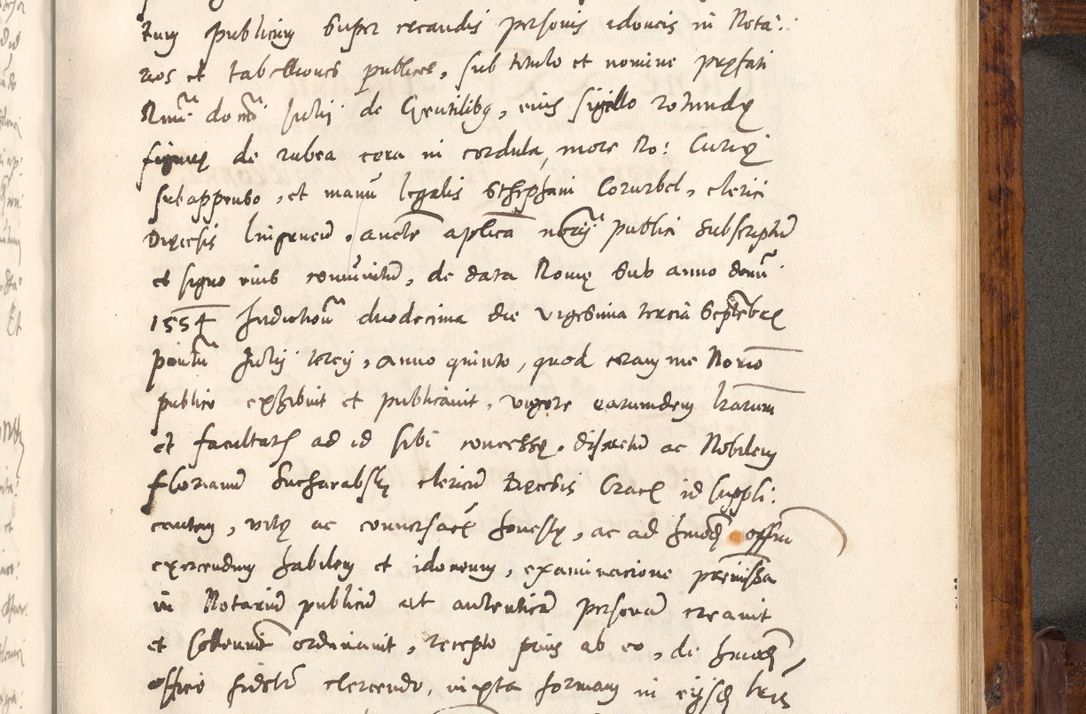 tum publicum super creandis personis idoneis in Nota:
rios et tabelliones publicos, sub titulo et nomine pręfati
Rmi domi Julij de Gentilibq, eius sigillo rotundę
figurę de rubea cera in cordula, more Ro: Curię
subappenso, et manu legalis Stephani Corurbel, clerici
Dięcesis Lingonen, aucte aplica notarij publici subscriptum
et signo eius comunitum, de data Romę sub anno domi
1554 Indictione duodecima die vigesima tercia Septembris
pontus Julij tercij, anno quinto, quod coram me Norio
publico exhibuit et publicauit, vigore earumdem lrarum
et facultatis ad id sibi concessę, discretum ac Nobilem
florianum Sucharabsky clericum Dięcesis Crac id suppli:
cantem, vitę ac conuersacis honestę, ac ad hmodi offiu
exercendum habilem et idoneum, examinacione premissa
in Notarium publicum et autenticam personam creauit
et sollenniter ordinauit, recepto prius ab eo, de hmodi
officio fideliter exercendo, iuxta formam in eijsdem lris